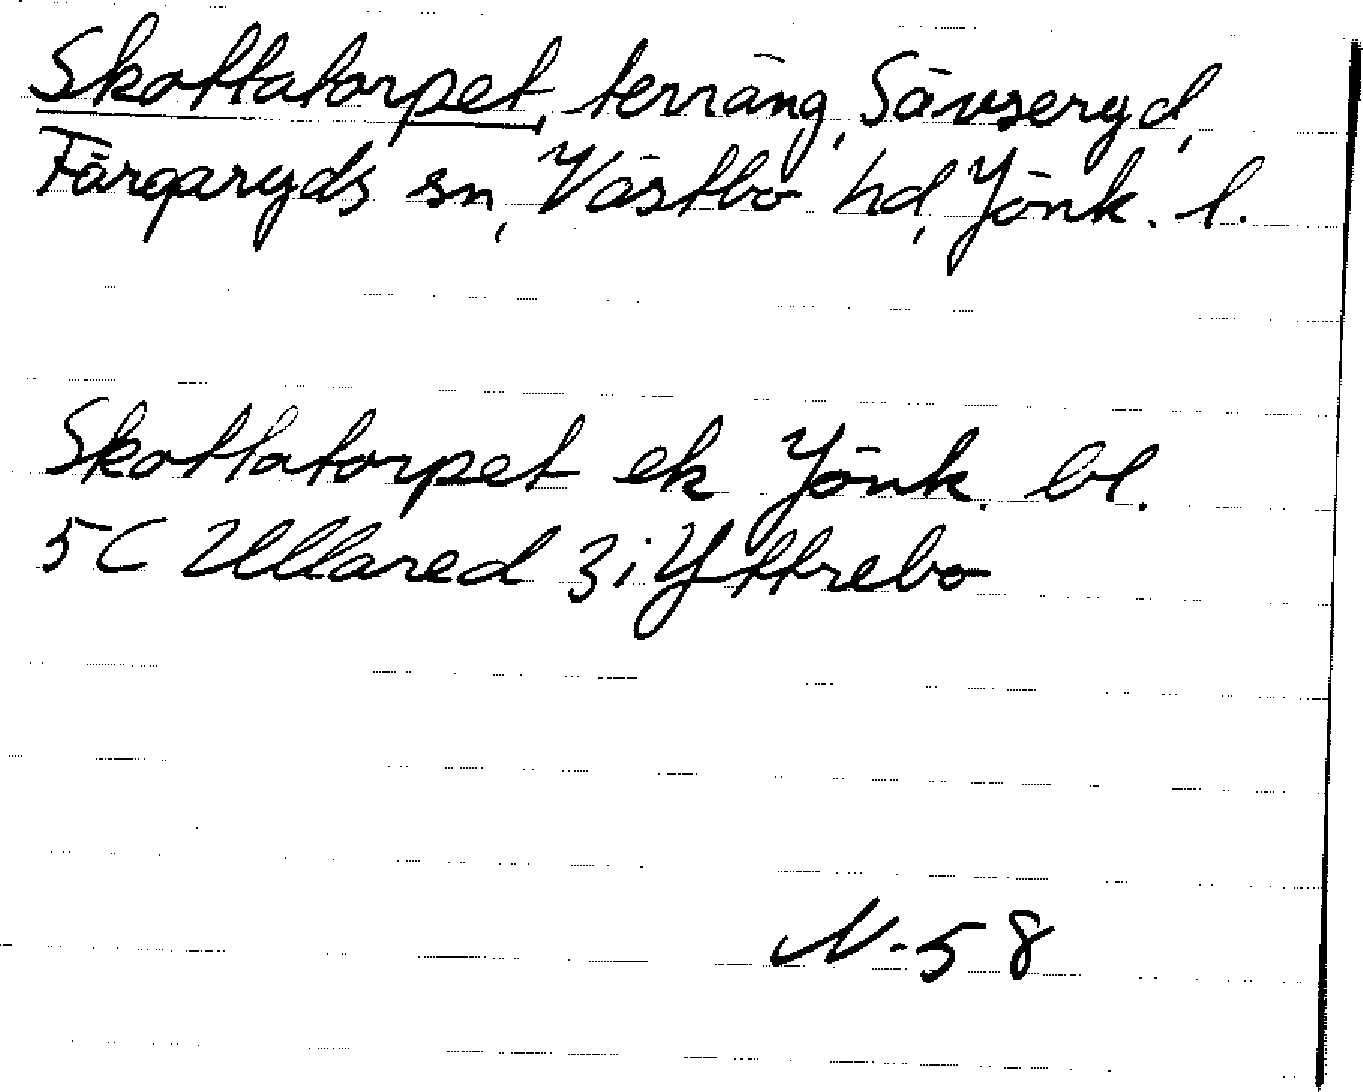 Skottatorpet, terräng, Sävseryd,
Färgaryds sn, Västbo hd, Jönk. l.
Skottatorpet ek Jönk. bl.
5C Ullared 3i Yttrebo
N-58